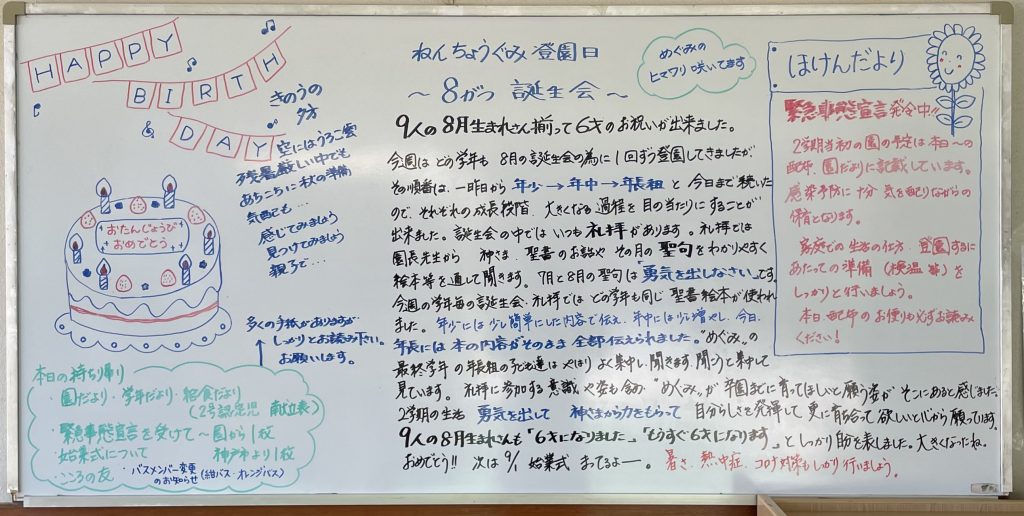 HAPPY
BIRTH
DAY
きのうの
夕方
空にはうろこ雲
残暑厳しい中でも
あちこちに秋の準備
気配も…
感じてみましょう
見つけてみましょう
親子で…
おたんじょうび
おめでとう
多くの手紙がありますが
しっかりとお読み下さい。
お願いします。
本日の持ち帰り
・園だより・学年だより・給食だより
(2号認定児 献立表)
・緊急事態宣言を受けて〜園から1枚
・始業式について 神戸市より1枚
・こころの友
・バスメンバー変更
のお知らせ(紺バス・オレンジバス)
ねんちょうぐみ 登園日
〜 8がつ 誕生会 〜
めぐみの
ヒマワリ咲いてます
9人の8月生まれさん揃って6才のお祝いが出来ました。
今週は どの学年も 8月の誕生会の為に1回ずつ登園してきましたが
その順番は、一昨日から 年少→年中→年長組 と 今日まで続いた
ので、それぞれの成長段階、大きくなる過程を目の当たりにすることが
出来ました。誕生会の中では いつも礼拝があります。礼拝では
園長先生から 神さま、聖書のお話や その月の聖句をわかりやすく
絵本等を通して聞きます。7月と8月の聖句は「勇気を出しなさい」です。
今週の学年毎の誕生会、礼拝では どの学年も同じ聖書絵本が使われ
ました。年少には少し簡単にした内容で伝え、年中には少し増やし、今日、
年長には 本の内容がそのまま全部伝えられました。"めぐみ"の
最終学年の年長組の子ども達は やはり よく集中し、聞きます。聞こうと集中して
見ています。 礼拝に参加する意識や姿も含め "めぐみ"が 卒園までに育ってほしいと願う姿が そこにあると感じました。
2学期の生活 勇気を出して 神さまから力をもらって 自分らしさを発揮して、更に育ち合って欲しいと心から願っています。
9人の8月生まれさんも「6才になりました」「もうすぐ6才になります」としっかり言葉を表しました。大きくなったね。
おめでとう!! 次は9/1 始業式 まってるよー。 暑さ、熱中症、コロナ対策もしっかり行いましょう。
ほけんだより
緊急事態宣言発令中!!
2学期当初の園の予定は本日〜の
配布、園だよりに記載しています。
感染予防に十分 気を配りながらの
保育となります。
家庭での生活の仕方、登園するに
あたっての準備(検温等)を
しっかりと行いましょう。
本日配布のお便りも必ずお読み
ください!